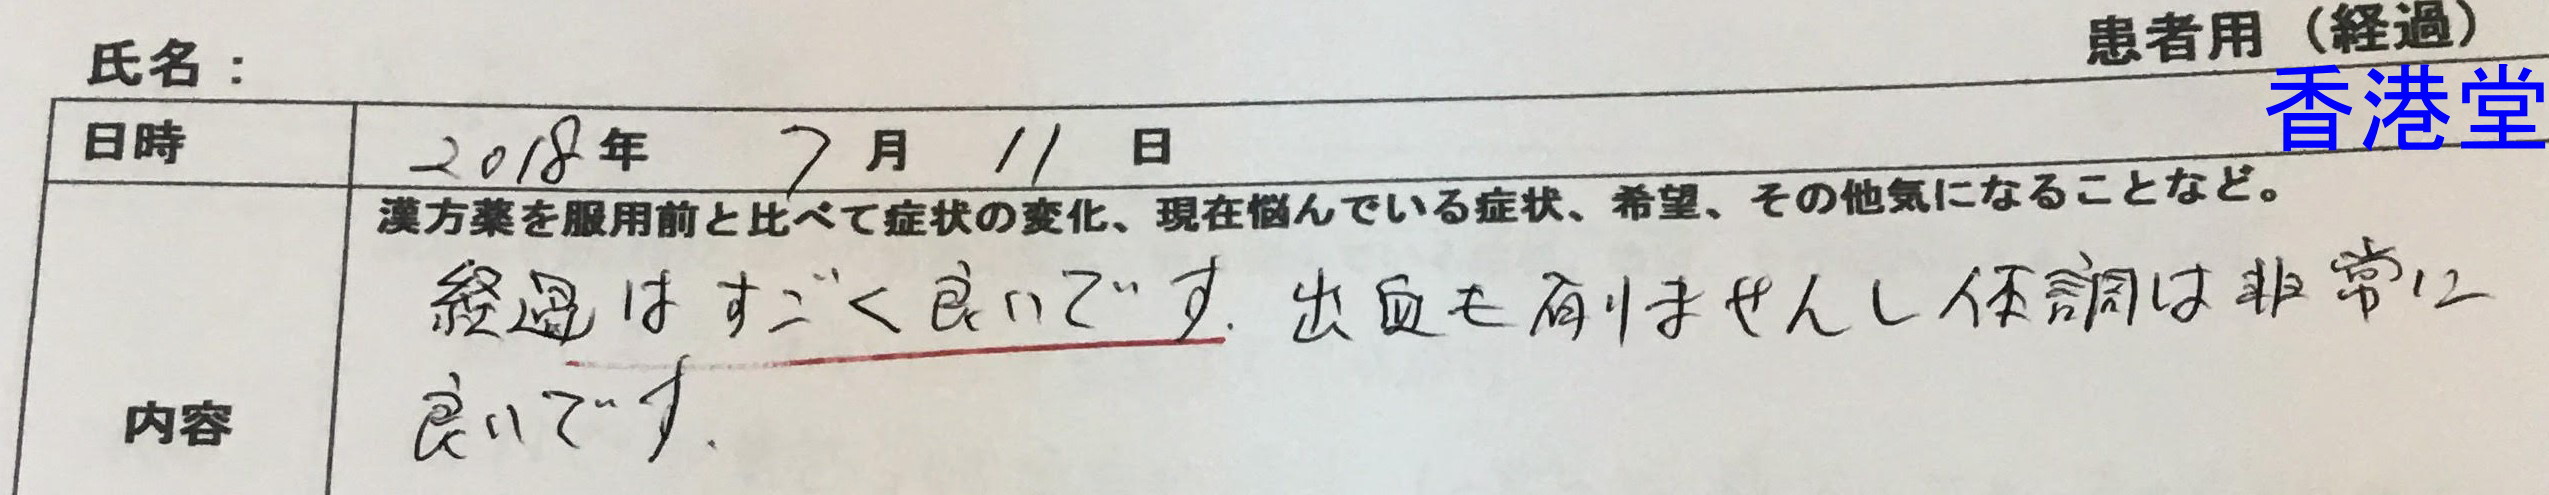 患者用（経過）
氏名：
香港堂
日時 2018年 7月 11日
漢方薬を服用前と比べて症状の変化、現在悩んでいる症状、希望、その他気になることなど。
経過はすごく良いです.出血も有りませんし体調は非常に
良いです.
内容